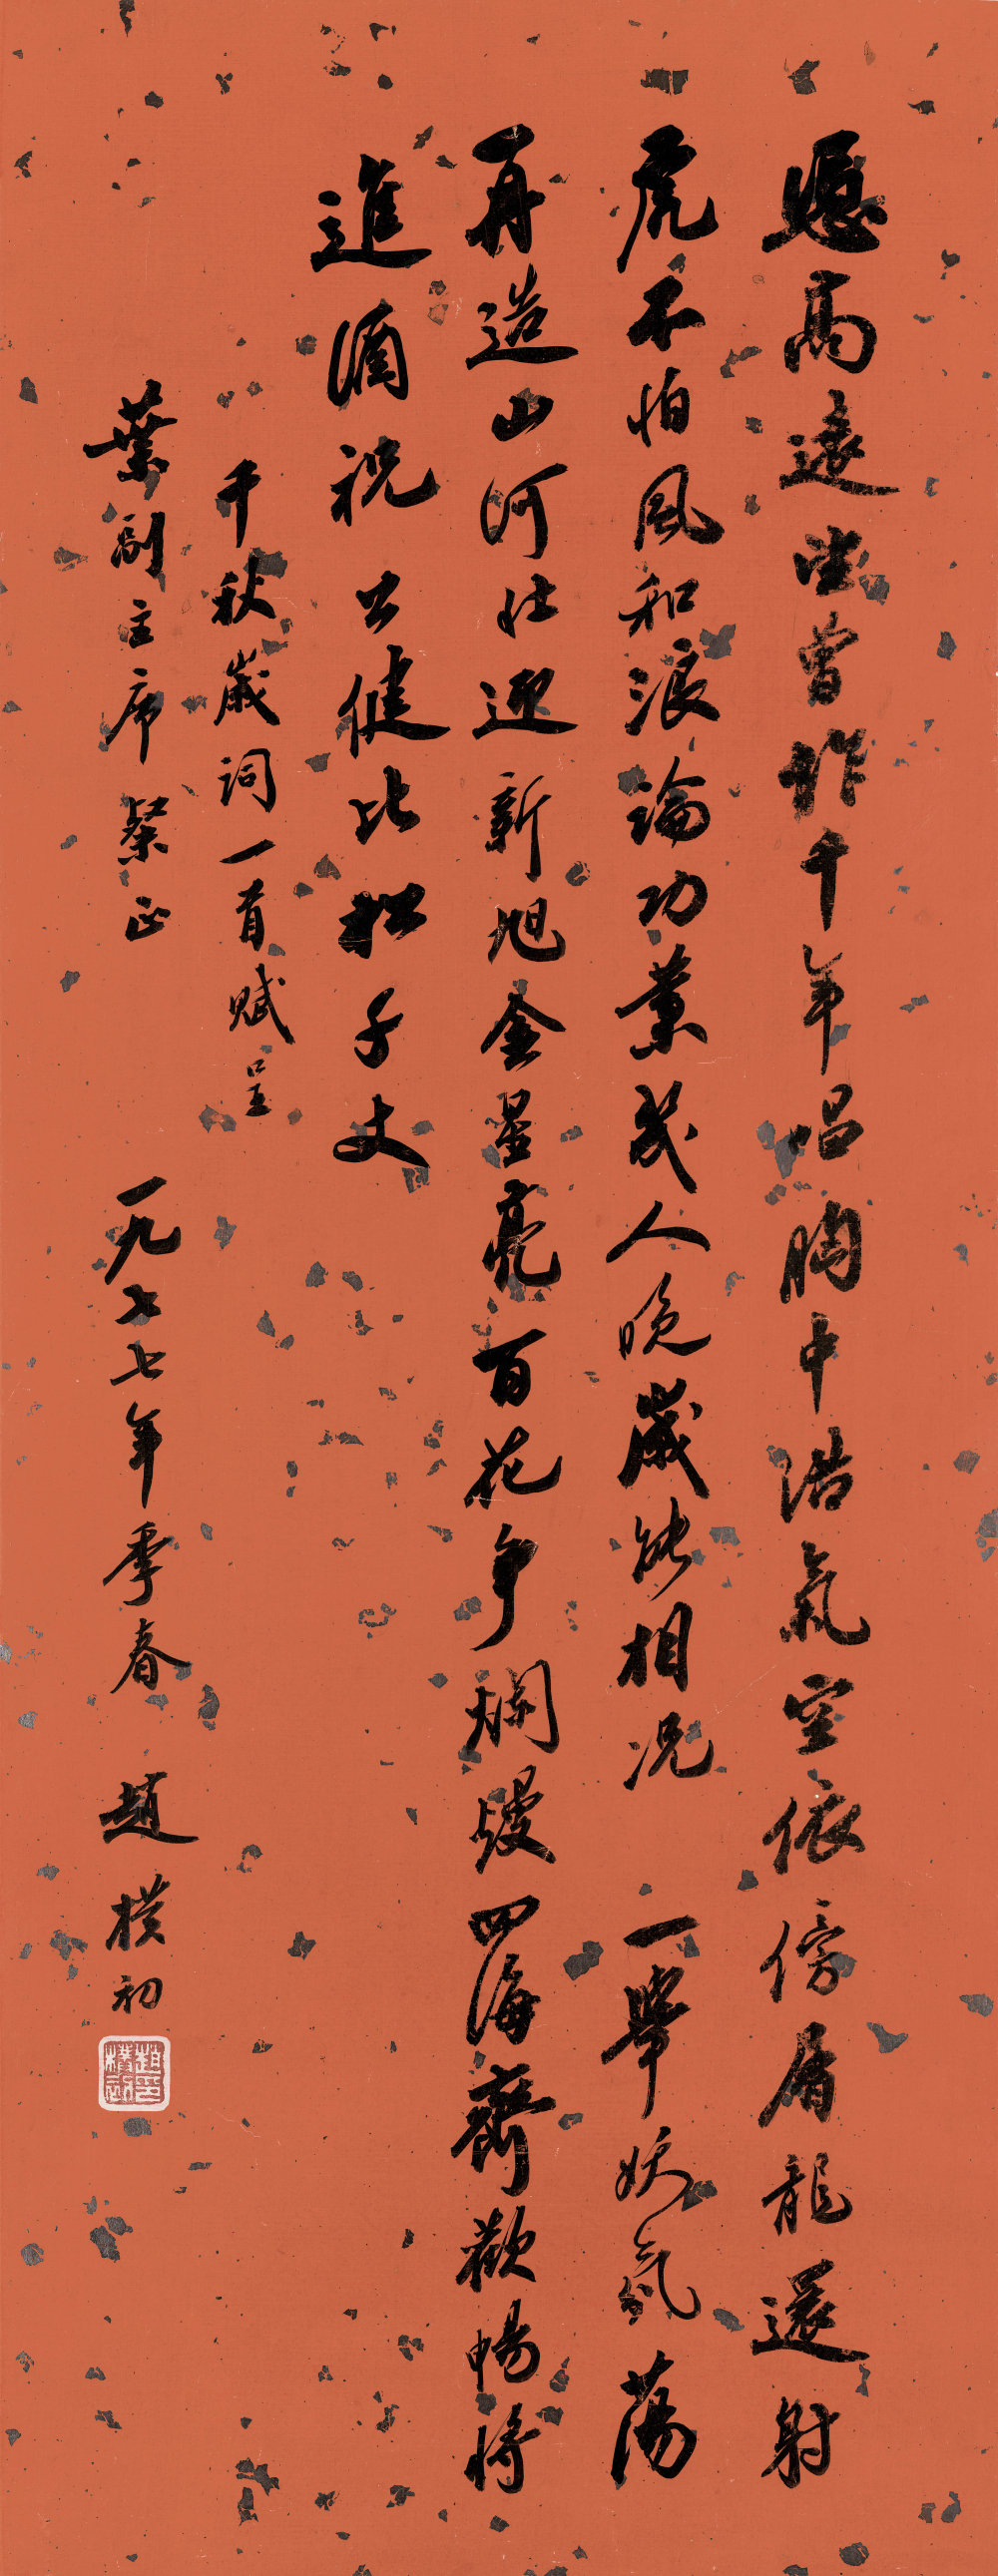 憑高遠望曾作千年唱胸中浩氣空依傍屠龍還射
虎不怕風和浪論功業幾人晚歲能相況一舉妖氛蕩
再造山河壯迎新旭金星亮百花爭爛熳四海齊歡暢將
進酒祝公健比松千丈
千秋歲詞一首賦呈
葉副主席粲正一九七七年季春趙樸初
趙樸初印